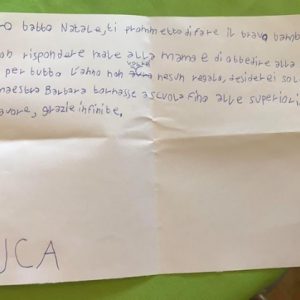 ro babbo Natale, ti prometto di fare il bravo bamb
on rispondere male alla mama e di obbedire alla
per tutto l'anno non vorrei nesun regalo, desiderei sol
maestra Barbara tornasse a scuola fino alle superiori
avore, grazie infinite.
UCA